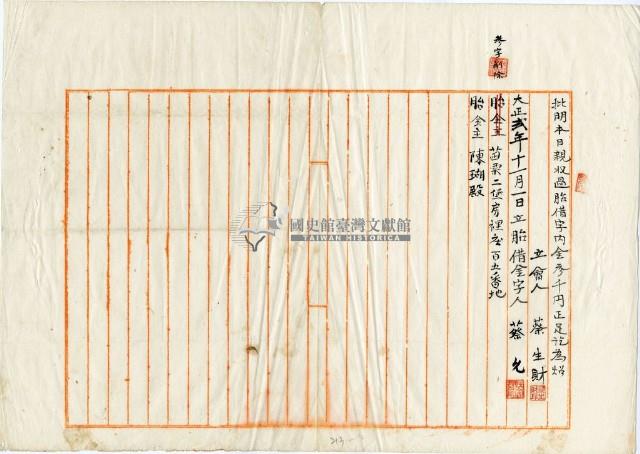 批明本日親收過胎借字內金參千円正足訖為炤
立會人 蔡生財
大正貳年十一月一日立胎借金字人 蔡允
胎金主 苗栗二堡房裡庄百五番地
胎金主 陳瑚殿
參字削除
國史館臺灣文獻館
TAIWAN HISTORICA
213